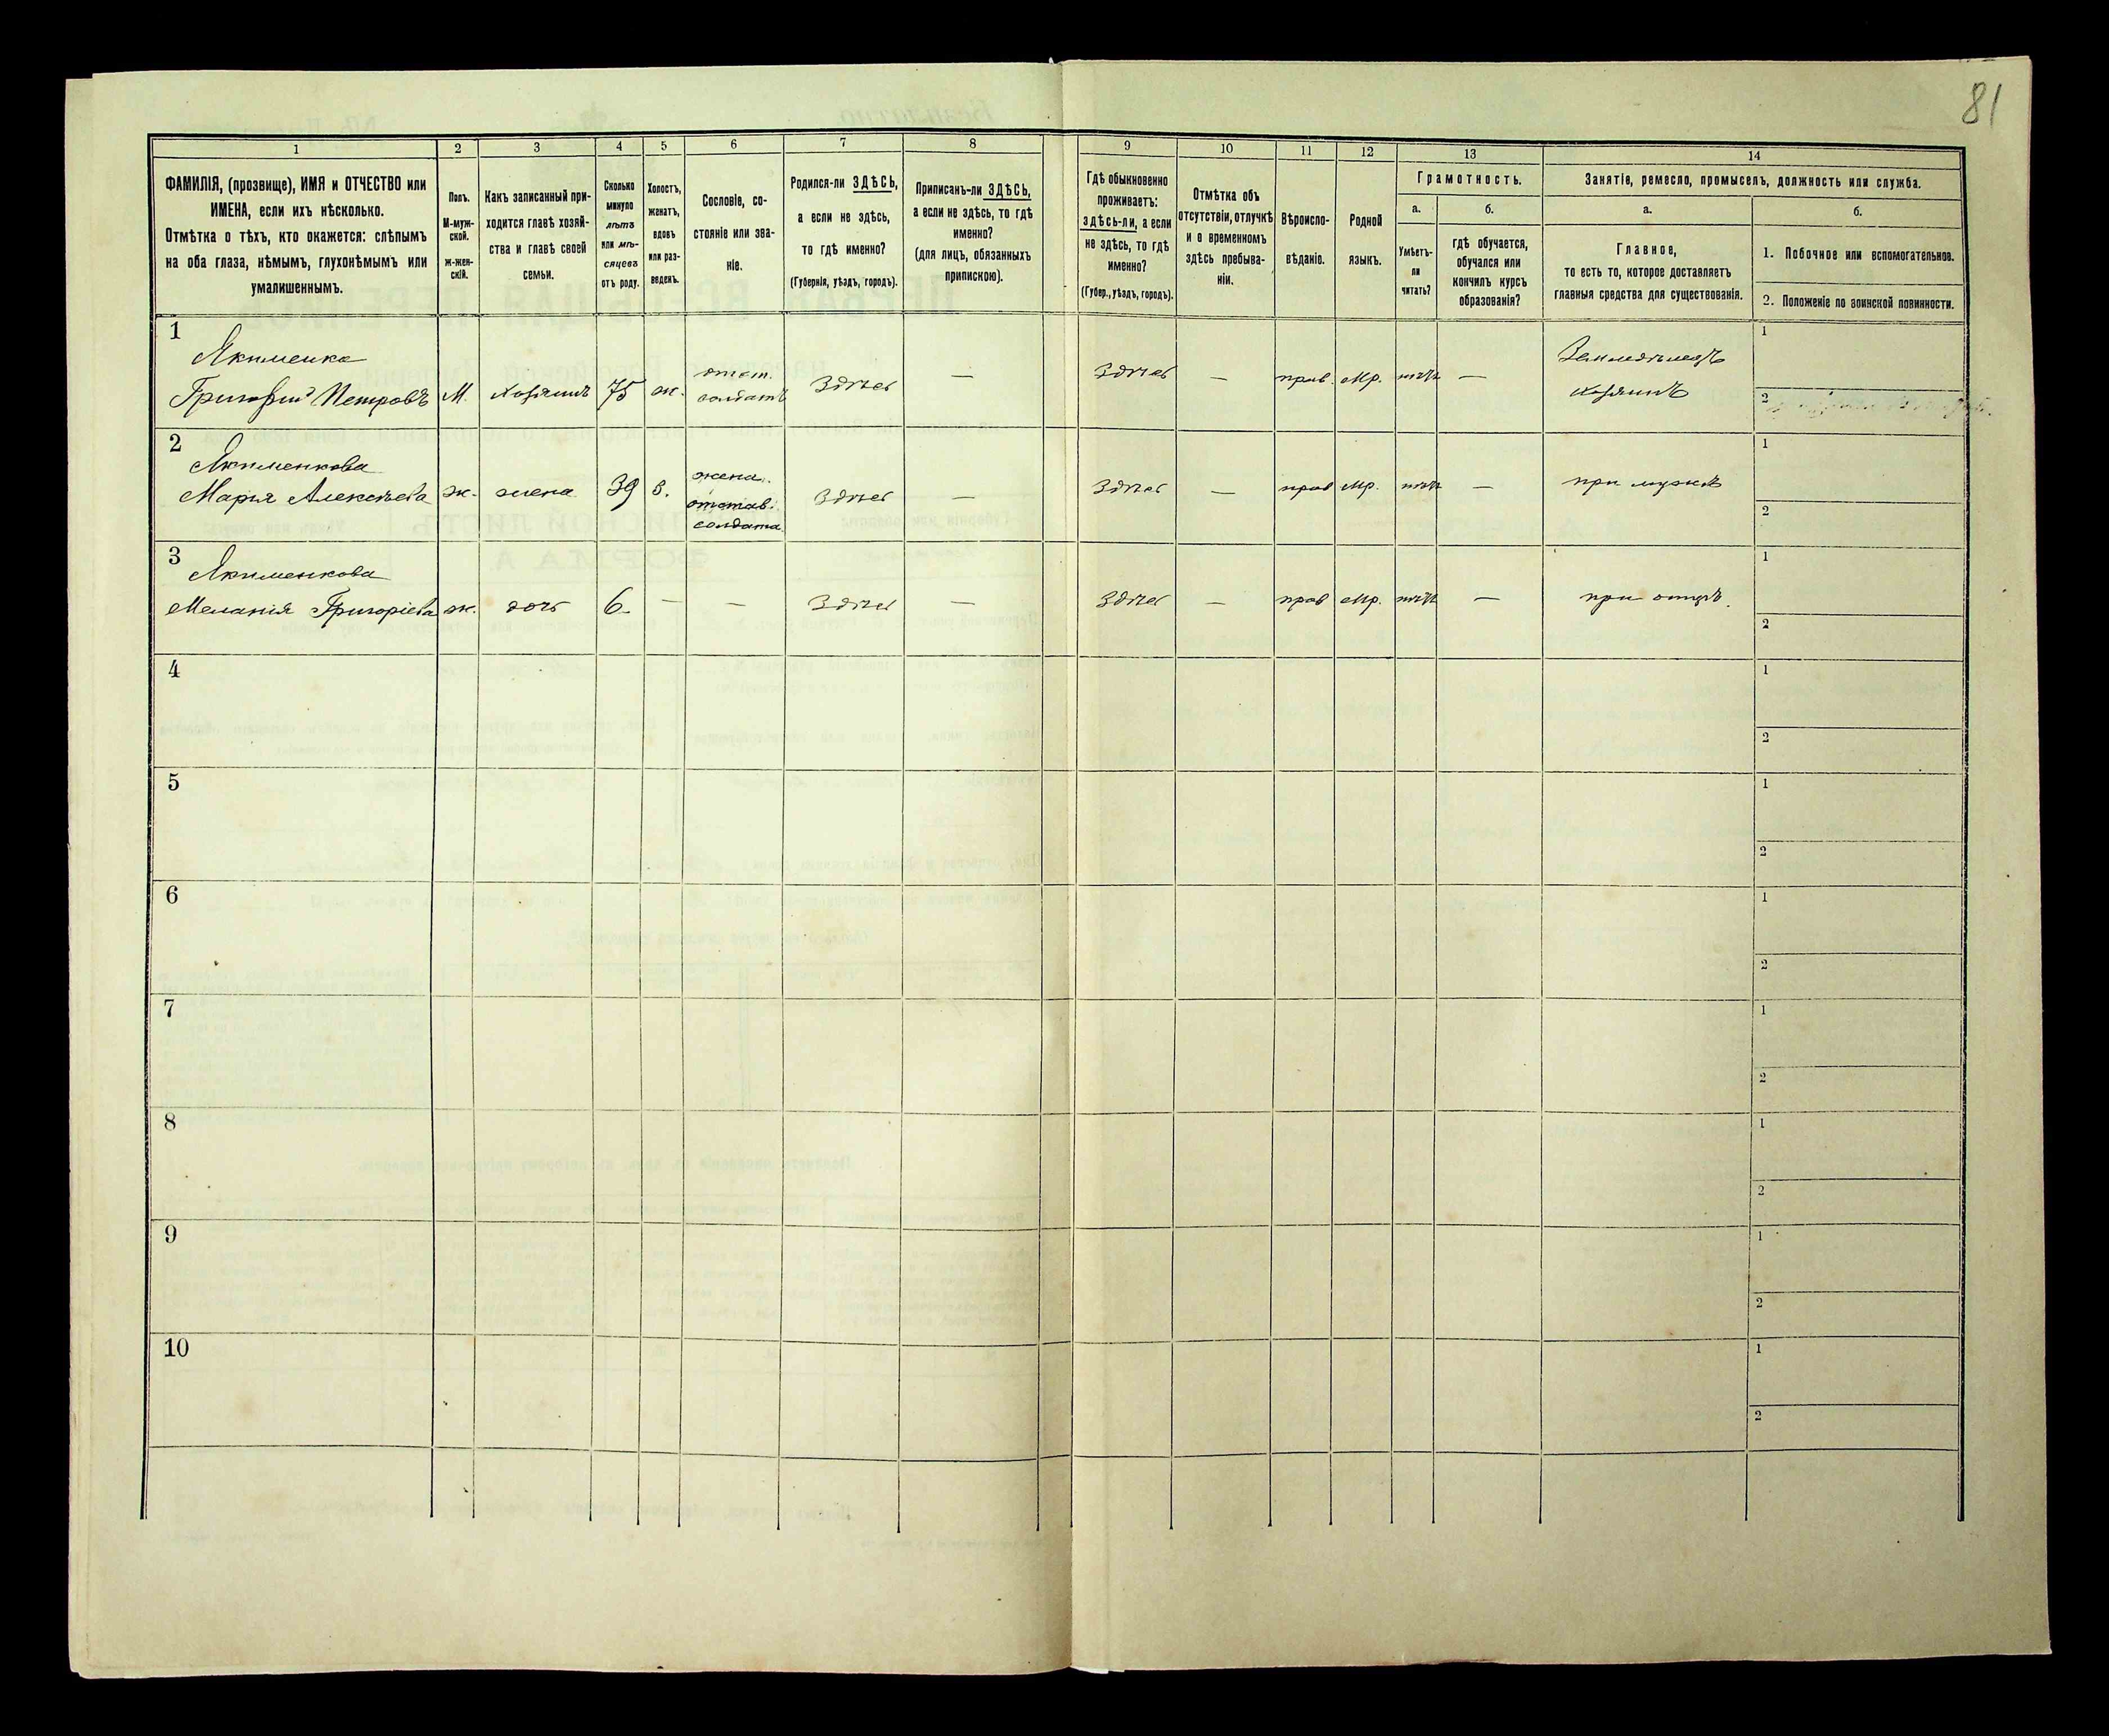 81
1
2
3
4
5
6
7
8
9
10
11
12
13
14
ФАМИЛІЯ, (прозвище), ИМЯ и ОТЧЕСТВО или
ИМЕНА, если ихъ нѣсколько.
Отмѣтка о тѣхъ, кто окажется: слѣпымъ
на оба глаза, нѣмымъ, глухонѣмымъ или
умалишеннымъ.
Полъ.
М-муж-
ской.
ж-жен-
скій.
Какъ записанный при-
ходится главѣ хозяй-
ства и главѣ своей
семьи.
Сколько
минуло
лѣтъ
или мѣ-
сяцевъ
отъ роду.
Холостъ,
женатъ,
вдовъ
или раз-
веденъ.
Сословіе, со-
стояніе или зва-
ніе.
Родился-ли ЗДѢСЬ,
а если не здѣсь,
то гдѣ именно?
(Губернія, уѣздъ, городъ).
Приписанъ-ли ЗДѢСЬ,
а если не здѣсь, то гдѣ
именно?
(для лицъ, обязанныхъ
припискою).
Гдѣ обыкновенно
проживаетъ:
здѣсь-ли, а если
не здѣсь, то гдѣ
именно?
(Губер., уѣздъ, городъ).
Отмѣтка объ
отсутствіи, отлучкѣ
и о временномъ
здѣсь пребыва-
ніи.
Вѣроиспо-
вѣданіе.
Родной
языкъ.
Грамотность.
а.
Умѣетъ-
ли
читать?
б.
гдѣ обучается,
обучался или
кончилъ курсъ
образованія?
Занятіе, ремесло, промыселъ, должность или служба.
а.
Главное,
то есть то, которое доставляетъ
главныя средства для существованія.
б.
1. Побочное или вспомогательное.
2. Положеніе по воинской повинности.
1
Якименко
Григорій Петровъ
М.
хозяинъ
75
ж.
отст.
солдатъ
Здѣсь
—
Здѣсь
—
прав.
Мр.
нѣтъ
—
Земледѣлецъ
хозяинъ
1
2
2
Якименкова
Марія Алексѣева
ж.
жена
39
з.
жена
отстав.
солдата
Здѣсь
—
Здѣсь
—
прав
Мр.
нѣтъ
—
при мужѣ
1
2
3
Якименкова
Меланія Григоріева
ж.
дочь
6.
—
—
Здѣсь
—
Здѣсь
—
прав
Мр.
нѣтъ
—
при отцѣ.
1
2
4
1
2
5
1
2
6
1
2
7
1
2
8
1
2
9
1
2
10
1
2